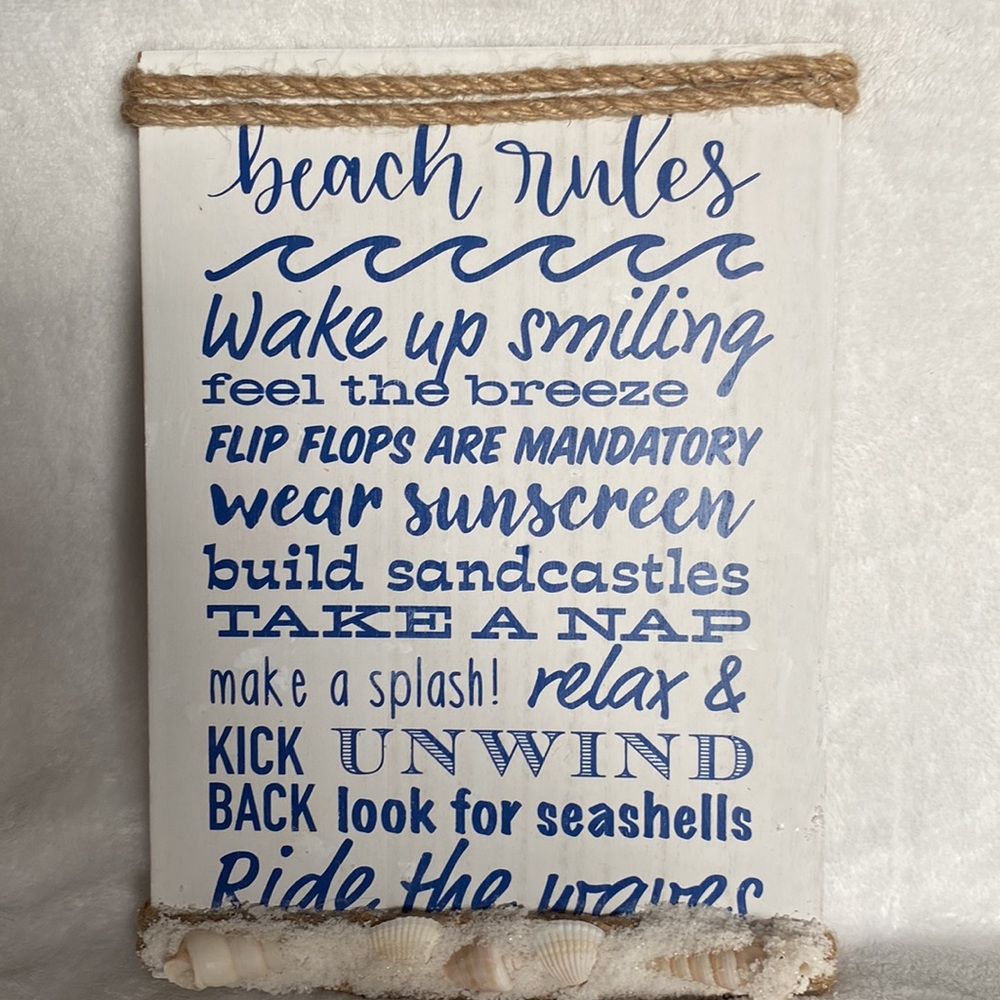 beach rules
Wake up smiling
feel the breeze
FLIP FLOPS ARE MANDATORY
wear sunscreen
build sandcastles
TAKE A NAP
make a splash! relax &
KICK UNWIND
BACK look for seashells
Ride the waves